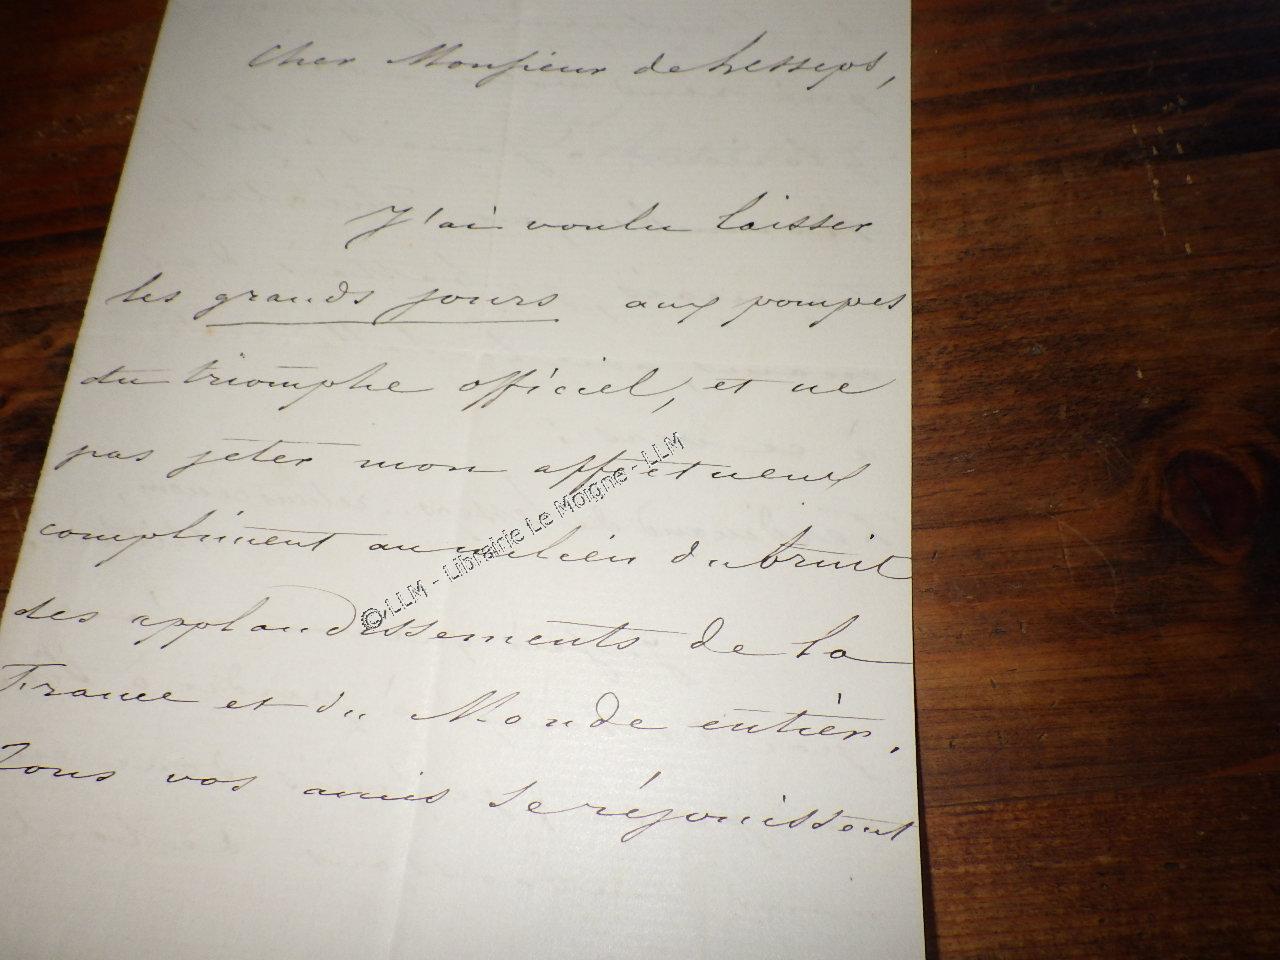 Cher Monsieur de Lesseps,
J'ai voulu laisser
les grands jours aux pompes
du triomphe officiel, et ne
pas jeter mon affectueux
compliment au milieu du bruit
des applaudissements de la
France et du Monde entier.
Tous vos amis se réjouissent
© LLM - Librairie Le Moigne - LLM